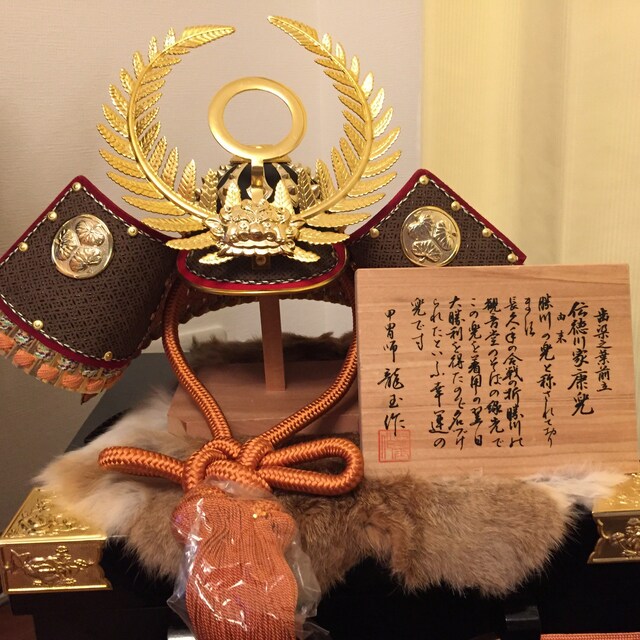 歯朶之葉前立
伝徳川家康兜
由来
勝川の兜と称されており
ます
長久手の合戦の折勝川の
観音堂のそばの縁先で
この兜を着用の翌日
大勝利を得たので名付け
られたという幸運の
兜です
甲冑師 龍玉作